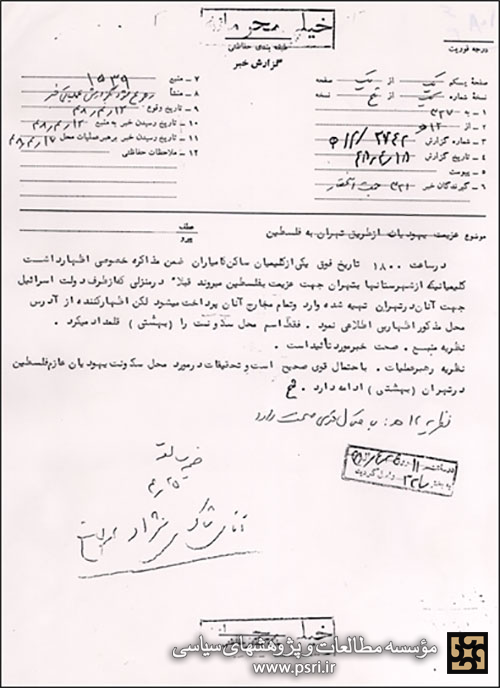 خیلی محرمانه
طبقه بندی حفاظتی
گزارش خبر
درجه فوریت
صفحه یک از یک صفحه
نسخه شماره یک از پنج نسخه
۱ - به ۳۲۷
۲ - از ۱۲ ه
۳ - شماره گزارش ۲۷۴۲/ ۱۲ ه
۴ - تاریخ گزارش
۵ - پیوست
۶ - گیرندگان خبر ۳۲۱ جهت استحضار
۷ - منبع ۱۵۳۹
۸ - منشا
۹ - تاریخ وقوع ۱۲ر۴ر۴۸
۱۰ - تاریخ رسیدن خبر به منبع ۱۲ر۴ر۴۸
۱۱ - تاریخ رسیدن خبر برهبرعملیات محل ۱۷ر۴ر۴۸
۱۲ - ملاحظات حفاظتی
موضوع عزیمت یهودیان ازطریق تهران به فلسطین
عطف
پیرو
درساعت ۱۸۰۰ تاریخ فوق یکی ازکلیمیان ساکن کامیاران ضمن مذاکره خصوصی اظهارداشت
کلیمیانیکه ازشهرستانها بتهران جهت عزیمت بفلسطین میروند قبلا" درمنزلی که ازطرف دولت اسرائیل
جهت آنان درتهران تهیه شده وارد وتمام مخارج آنان پرداخت میشود لکن اظهارکننده از آدرس
محل مذکور اظهاربی اطلاعی نمود . فقط اسم محل سکونت را (بهشتی ) قلمداد میکرد .
نظریه منبع . صحت خبرمورد تائید است .
نظریه رهبرعملیات . باحتمال قوی صحیح است و تحقیقات درمورد محل سکونت یهودیان عازم فلسطین
درتهران (بهشتی ) ادامه دارد .
نظریه ۱۲ ه : به احتمال قوی صحت دارد
۲۵ر۴
آقای نژاد
خیلی محرمانه
مؤسسه مطالعات و پژوهشهای سیاسی
www.psri.ir